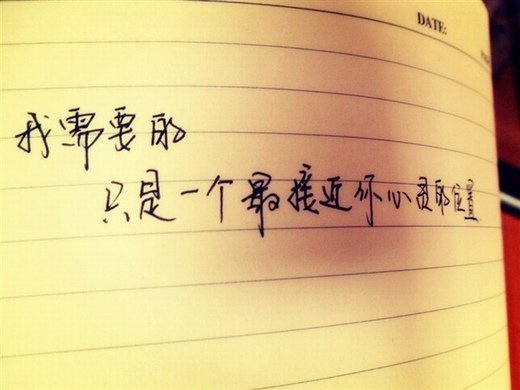 DATE:
我需要的
只是一个最接近你心灵的位置